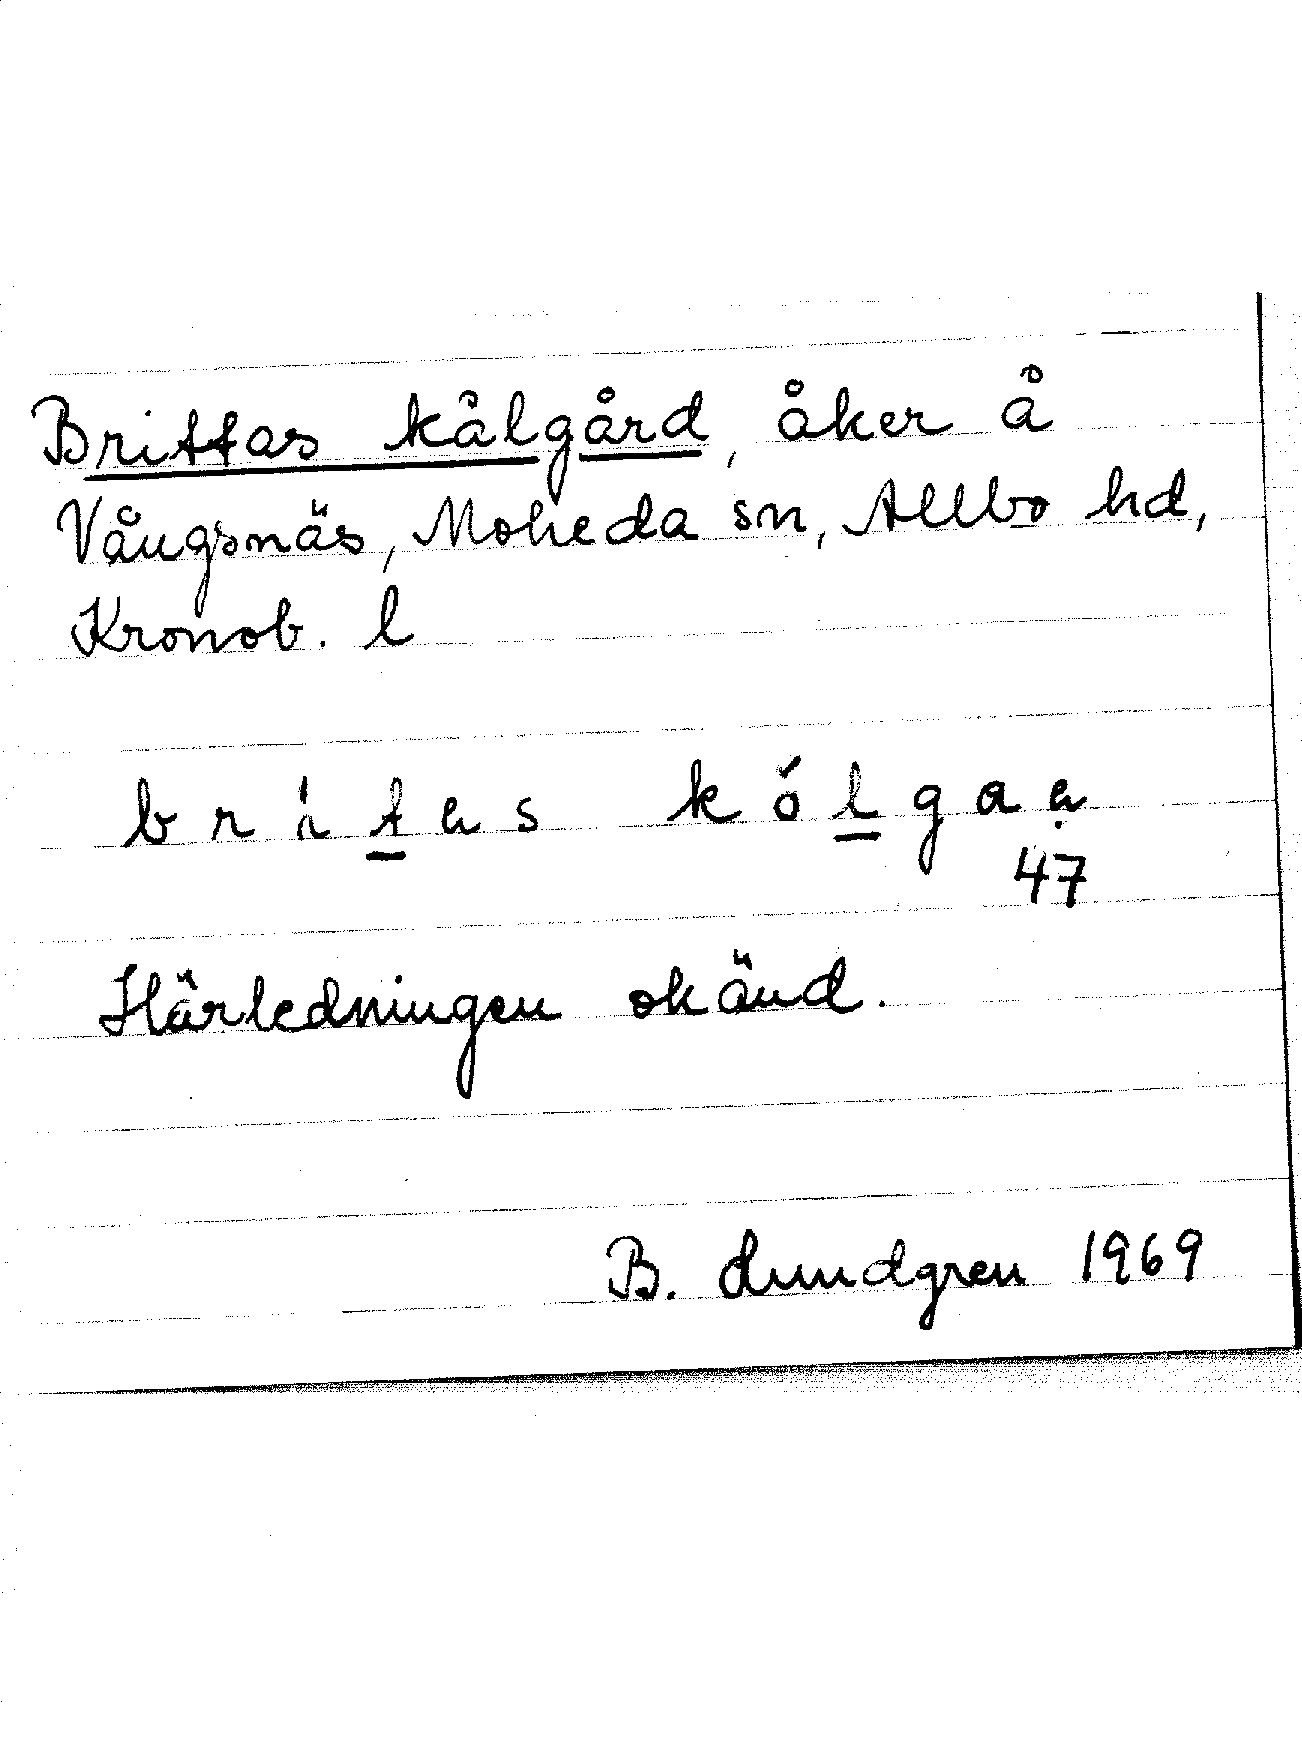 Brittas kålgård, åker å
Vångsnäs, Moheda sn, Allbo hd,
Kronob. l
brítas kólgaa
47
Härledningen okänd.
B. Lundgren 1969